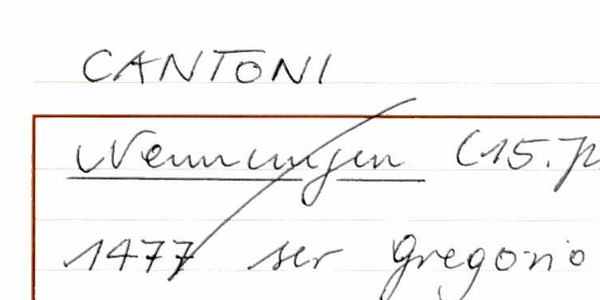 CANTONI
Nennungen (15. J
1477 ser Gregorio